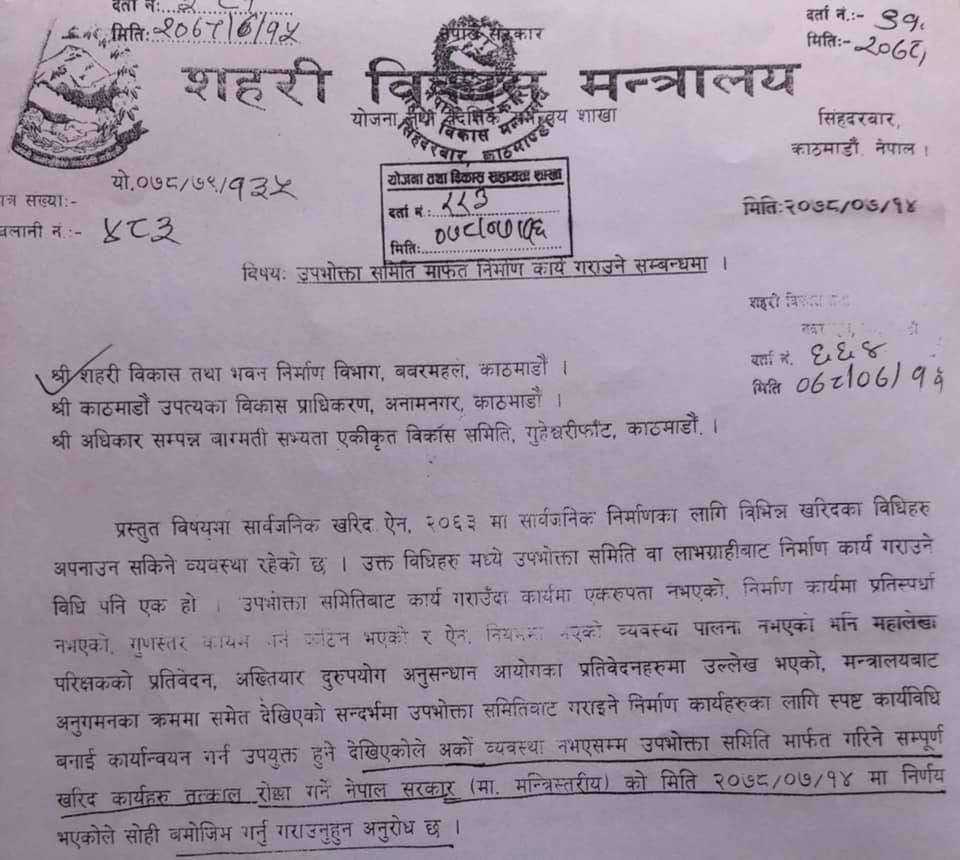 दर्ता नं:
मिति: २०७८/७/१५
दर्ता नं.:-
मिति:- २०७८
नेपाल सरकार
शहरी विकास मन्त्रालय
योजना शाखा
सिंहदरबार,
काठमाडौं, नेपाल ।
सिंहदरबार, काठमाडौं
यो.०७८/७९/१३५
पत्र संख्या:-
चलानी नं.:- ४८३
योजना तथा विकास सहायता शाखा
दर्ता नं.: २२३
मिति: ०७८/०७/१६
मिति:२०७८/०७/१४
विषयः उपभोक्ता समिति मार्फत निर्माण कार्य गराउने सम्बन्धमा ।
शहरी
दर्ता नं. ६६४
मिति ०७८/०७/१६
श्री शहरी विकास तथा भवन निर्माण विभाग, बबरमहल, काठमाडौं ।
श्री काठमाडौं उपत्यका विकास प्राधिकरण, अनामनगर, काठमाडौं ।
श्री अधिकार सम्पन्न वाग्मती सभ्यता एकीकृत विकास समिति, गुहेश्वरीफाँट, काठमाडौं, ।
प्रस्तुत विषयमा सार्वजनिक खरिद ऐन, २०६३ मा सार्वजनिक निर्माणका लागि विभिन्न खरिदका विधिहरु
अपनाउन सकिने व्यवस्था रहेको छ । उक्त विधिहरु मध्ये उपभोक्ता समिति वा लाभग्राहीबाट निर्माण कार्य गराउने
विधि पनि एक हो । उपभोक्ता समितिबाट कार्य गराउँदा कार्यमा एकरुपता नभएको, निर्माण कार्यमा प्रतिस्पर्धा
नभएको, गुणस्तर कायम गर्न कठिन भएको र ऐन, नियममा भएको व्यवस्था पालना नभएको भनि महालेखा
परिक्षकको प्रतिवेदन, अख्तियार दुरुपयोग अनुसन्धान आयोगका प्रतिवेदनहरुमा उल्लेख भएको, मन्त्रालयबाट
अनुगमनका क्रममा समेत देखिएको सन्दर्भमा उपभोक्ता समितिबाट गराइने निर्माण कार्यहरुका लागि स्पष्ट कार्यविधि
बनाई कार्यान्वयन गर्न उपयुक्त हुने देखिएकोले अर्को व्यवस्था नभएसम्म उपभोक्ता समिति मार्फत गरिने सम्पूर्ण
खरिद कार्यहरु तत्काल रोक्का गर्ने नेपाल सरकार (मा. मन्त्रिस्तरीय) को मिति २०७८/०७/१४ मा निर्णय
भएकोले सोही बमोजिम गर्नु गराउनुहुन अनुरोध छ ।